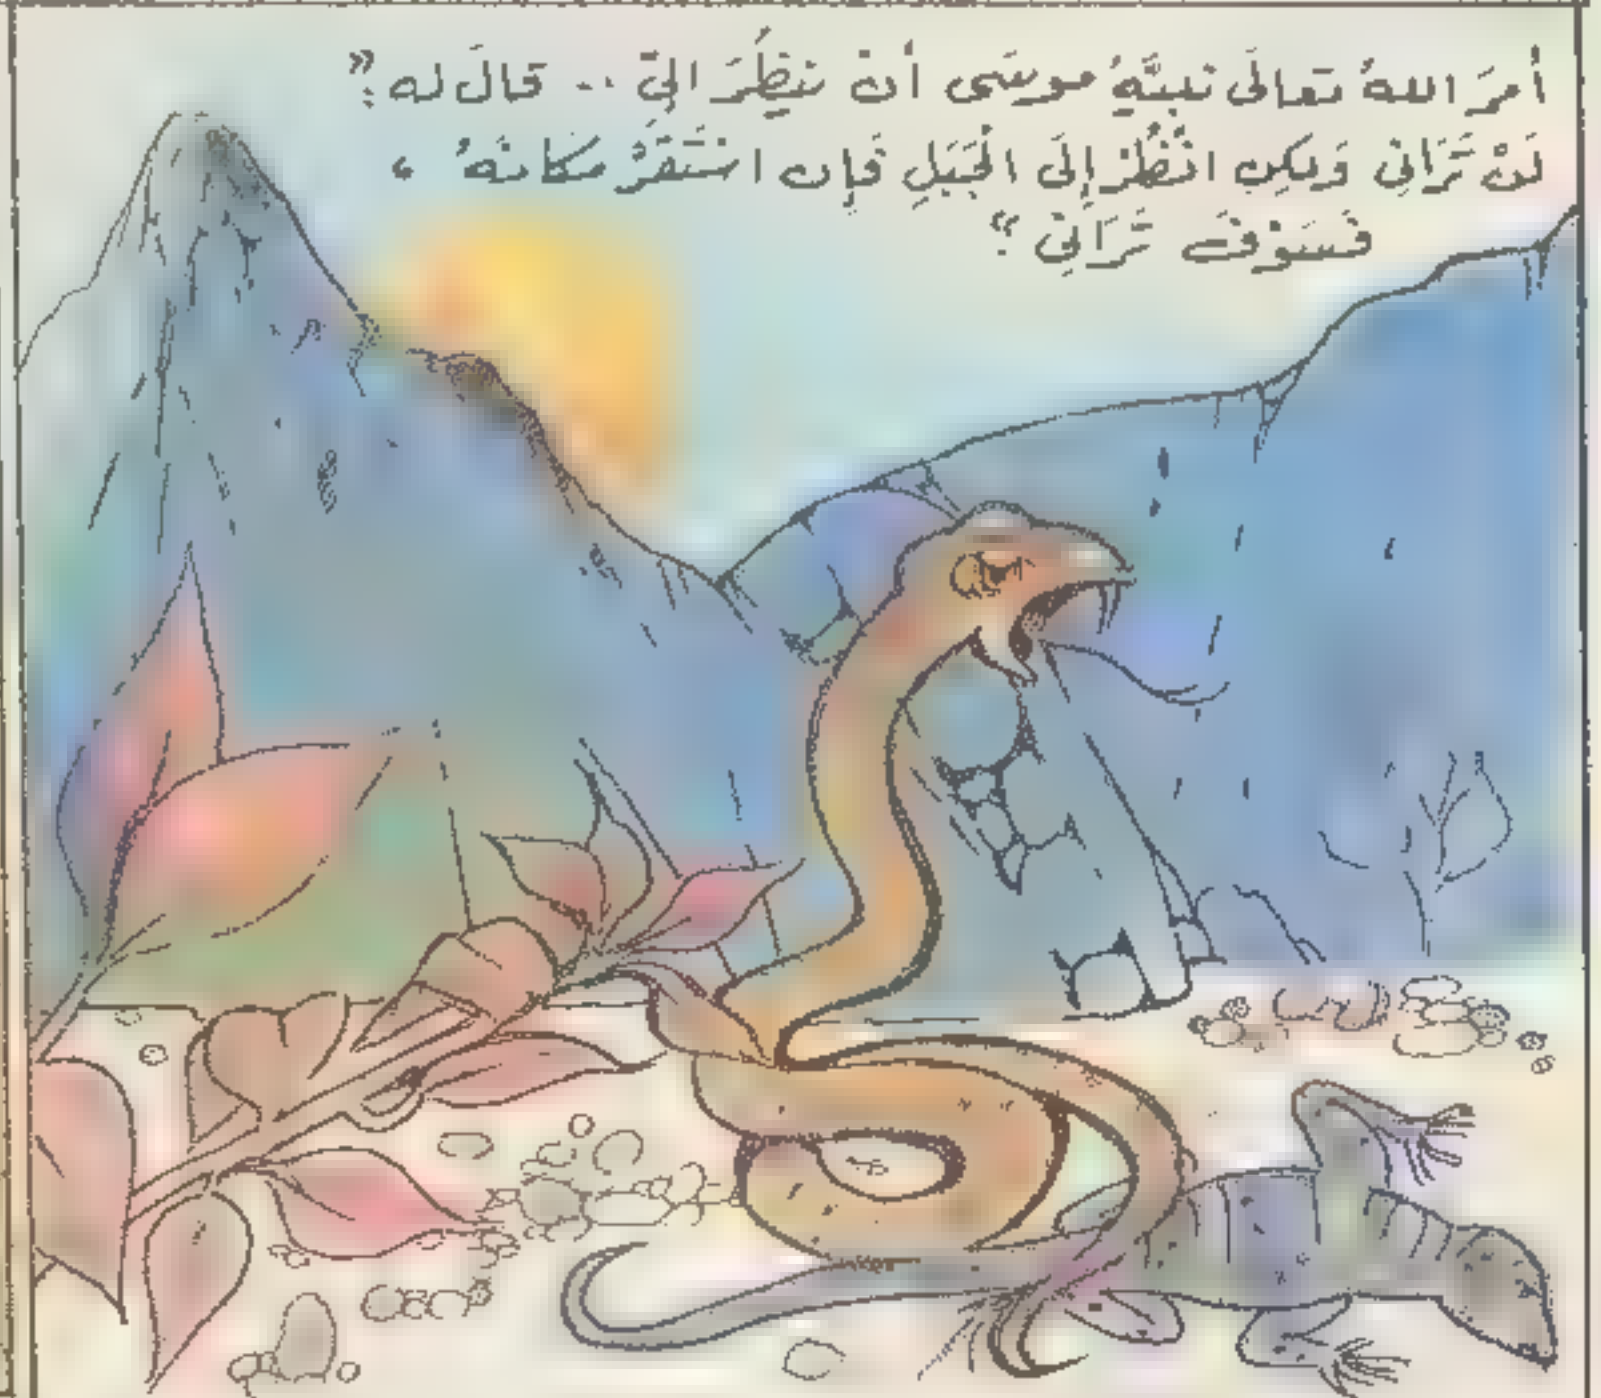 أمرَ اللهُ تعالَى نبيَّهُ موسَى أن ينظُرَ اليّ .. قالَ له :"
لَنْ تَرَانِي وَلكِنِ انْظُرْ إِلَى الْجَبَلِ فَإِن اسْتَقَرَّ مَكَانَهُ ،
فَسَوْفَ تَرَانِي "